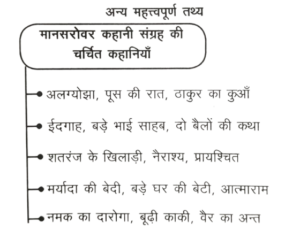 अन्य महत्त्वपूर्ण तथ्य
मानसरोवर कहानी संग्रह की
चर्चित कहानियाँ
अलग्योझा, पूस की रात, ठाकुर का कुआँ
ईदगाह, बड़े भाई साहब, दो बैलों की कथा
शतरंज के खिलाड़ी, नैराश्य, प्रायश्चित
मर्यादा की बेदी, बड़े घर की बेटी, आत्माराम
नमक का दारोगा, बूढ़ी काकी, वैर का अन्त